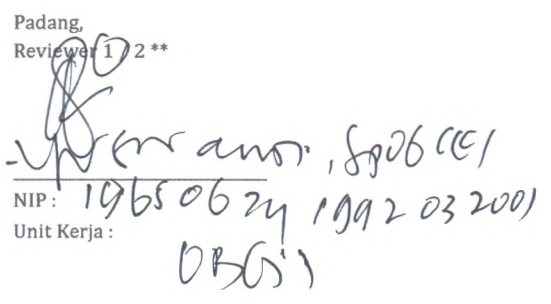 Padang,
Reviewer 1 / 2 **
, SpOG (K)
NIP : 19650624 199203 2001
Unit Kerja :
OBGIN